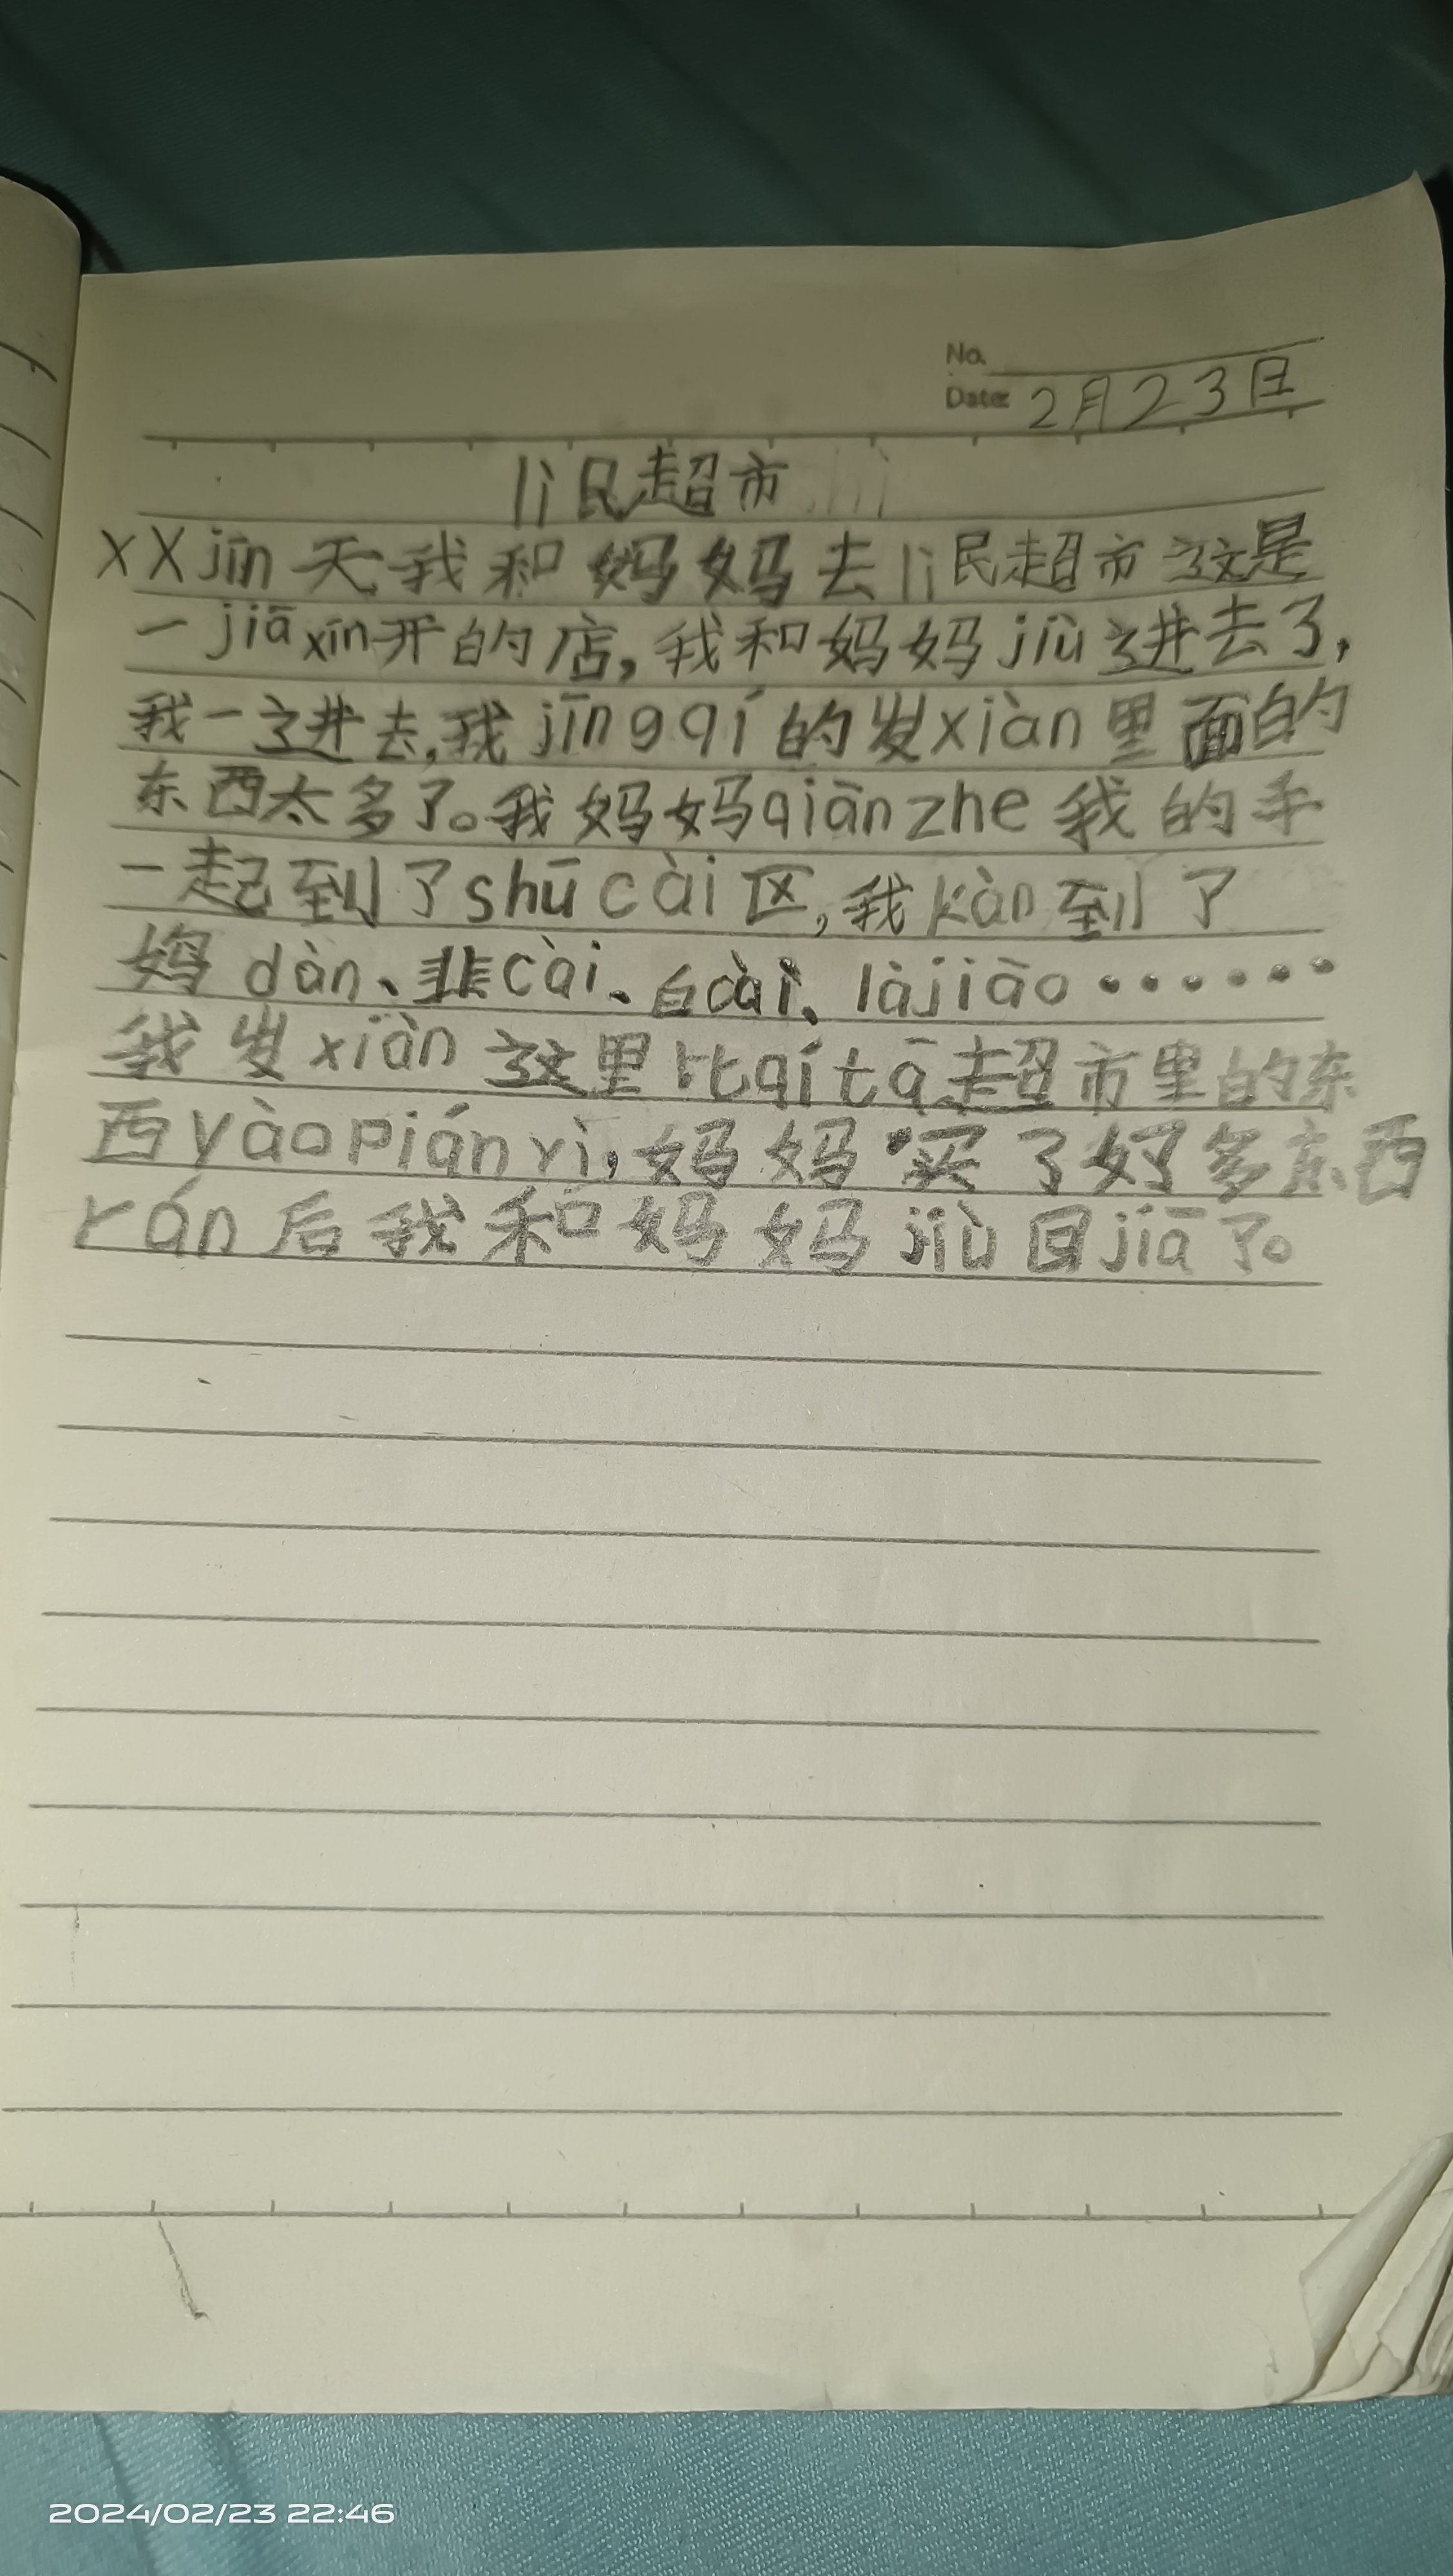 No.
Date: 2月23日
lì民超市
XXjīn天我和妈妈去lì民超市这是
一jiāxīn开的店,我和妈妈jiù进去了,
我一进去,我jīngqí的发xiàn里面的
东西太多了。我妈妈qiānzhe我的手
一起到了shūcài区,我kàn到了
鸡dàn、韭cài、白cài、làjiāo······
我发xiàn这里比qítā超市里的东
西yàopiányì,妈妈买了好多东西
rán后我和妈妈jiù回jiā了。
2024/02/23 22:46